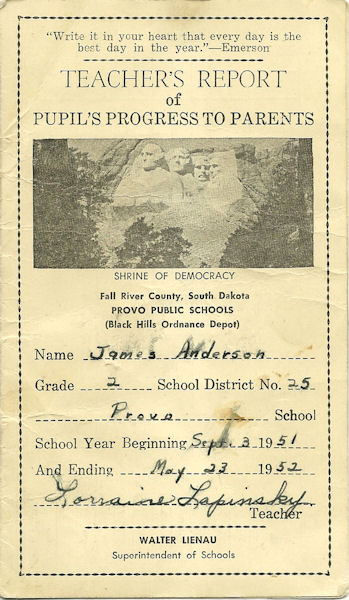 "Write it in your heart that every day is the
best day in the year."—Emerson
TEACHER'S REPORT
of
PUPIL'S PROGRESS TO PARENTS
SHRINE OF DEMOCRACY
Fall River County, South Dakota
PROVO PUBLIC SCHOOLS
(Black Hills Ordnance Depot)
Name James Anderson
Grade 2 School District No. 25
Provo School
School Year Beginning Sept. 3 1951
And Ending May 23 1952
Lorraine Lapinsky
Teacher
WALTER LIENAU
Superintendent of Schools